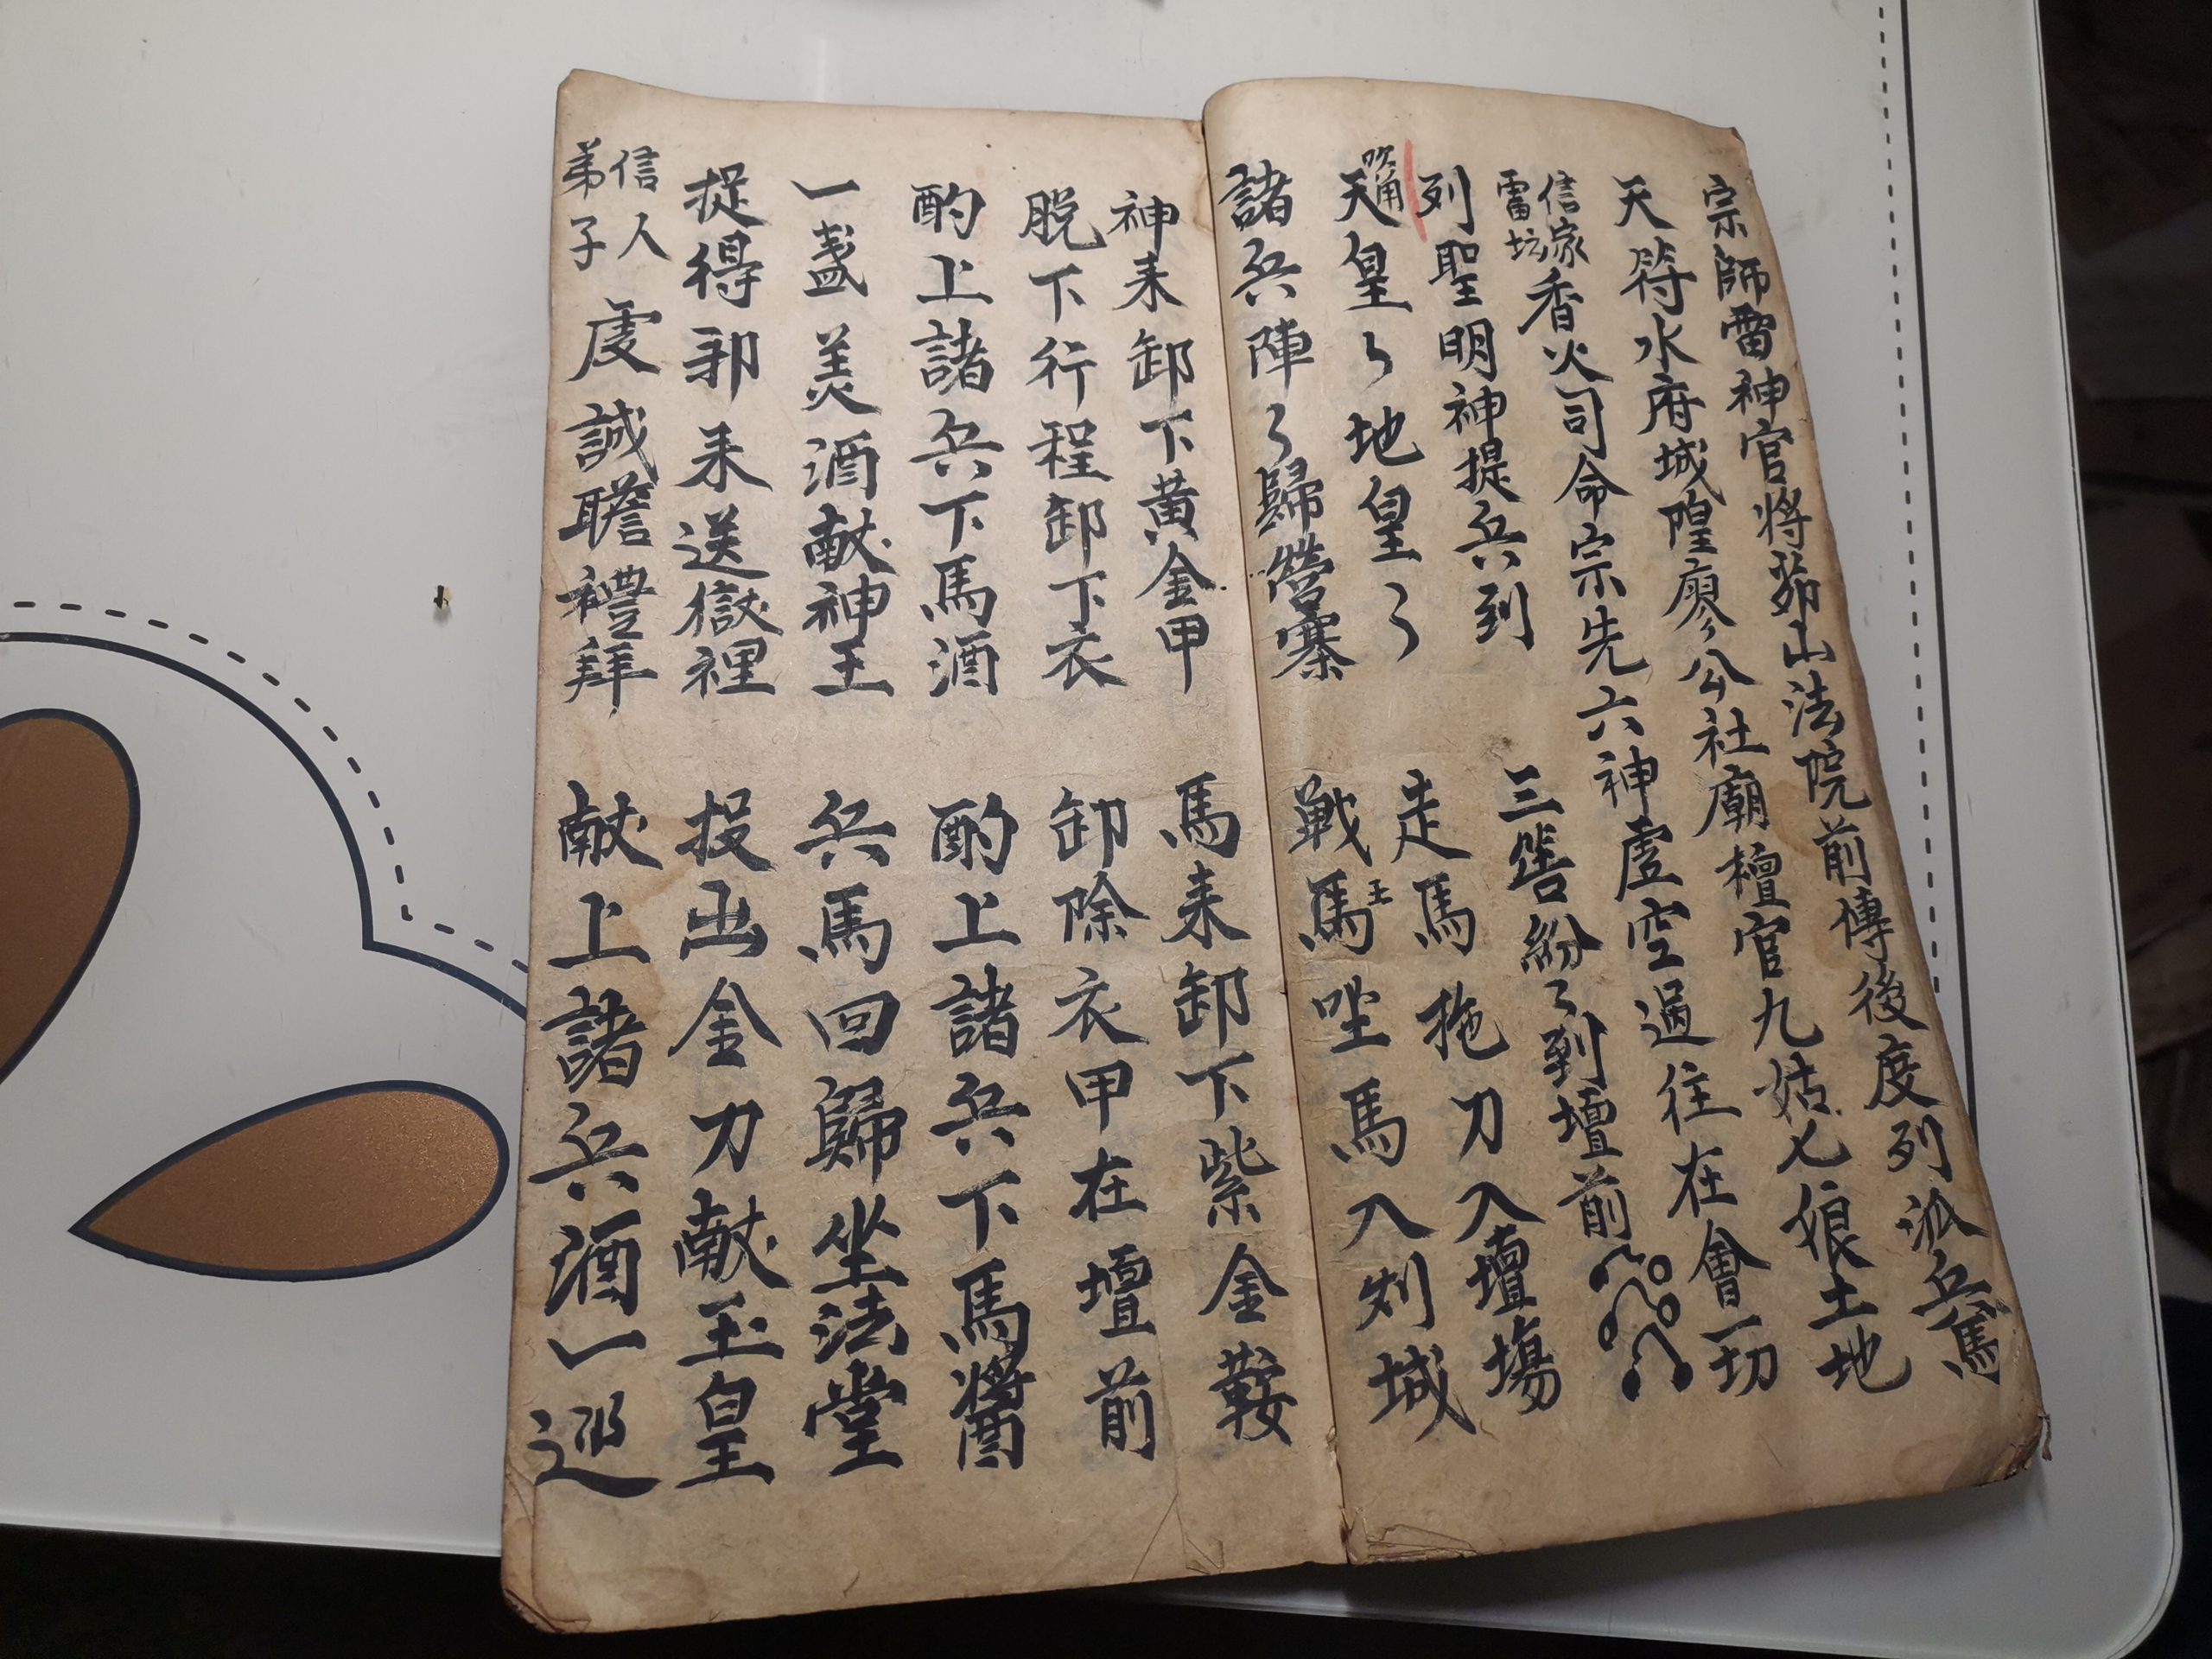 宗師雷神官將茆山法院前傳後度列派兵馬
天符水府城隍廖公社廟檀官九姑七娘土地
信家
雷坛
香火司命宗先六神虛空過往在會一切
列聖明神提兵到 三誥紛々到壇前
吹角
天皇々地皇々 走馬拖刀入壇場
諸兵陣々歸營寨 戰馬王𫪁馬入刘城
神来卸下黃金甲 馬来卸下紫金鞍
脫下行程卸下衣 卸除衣甲在壇前
酌上諸兵下馬酒 酌上諸兵下馬醬
一盞美酒献神王 兵馬回歸坐法堂
捉得邪来送獄裡 投出金刀献玉皇
信人
弟子
虔誠瞻禮拜 献上諸兵酒一巡